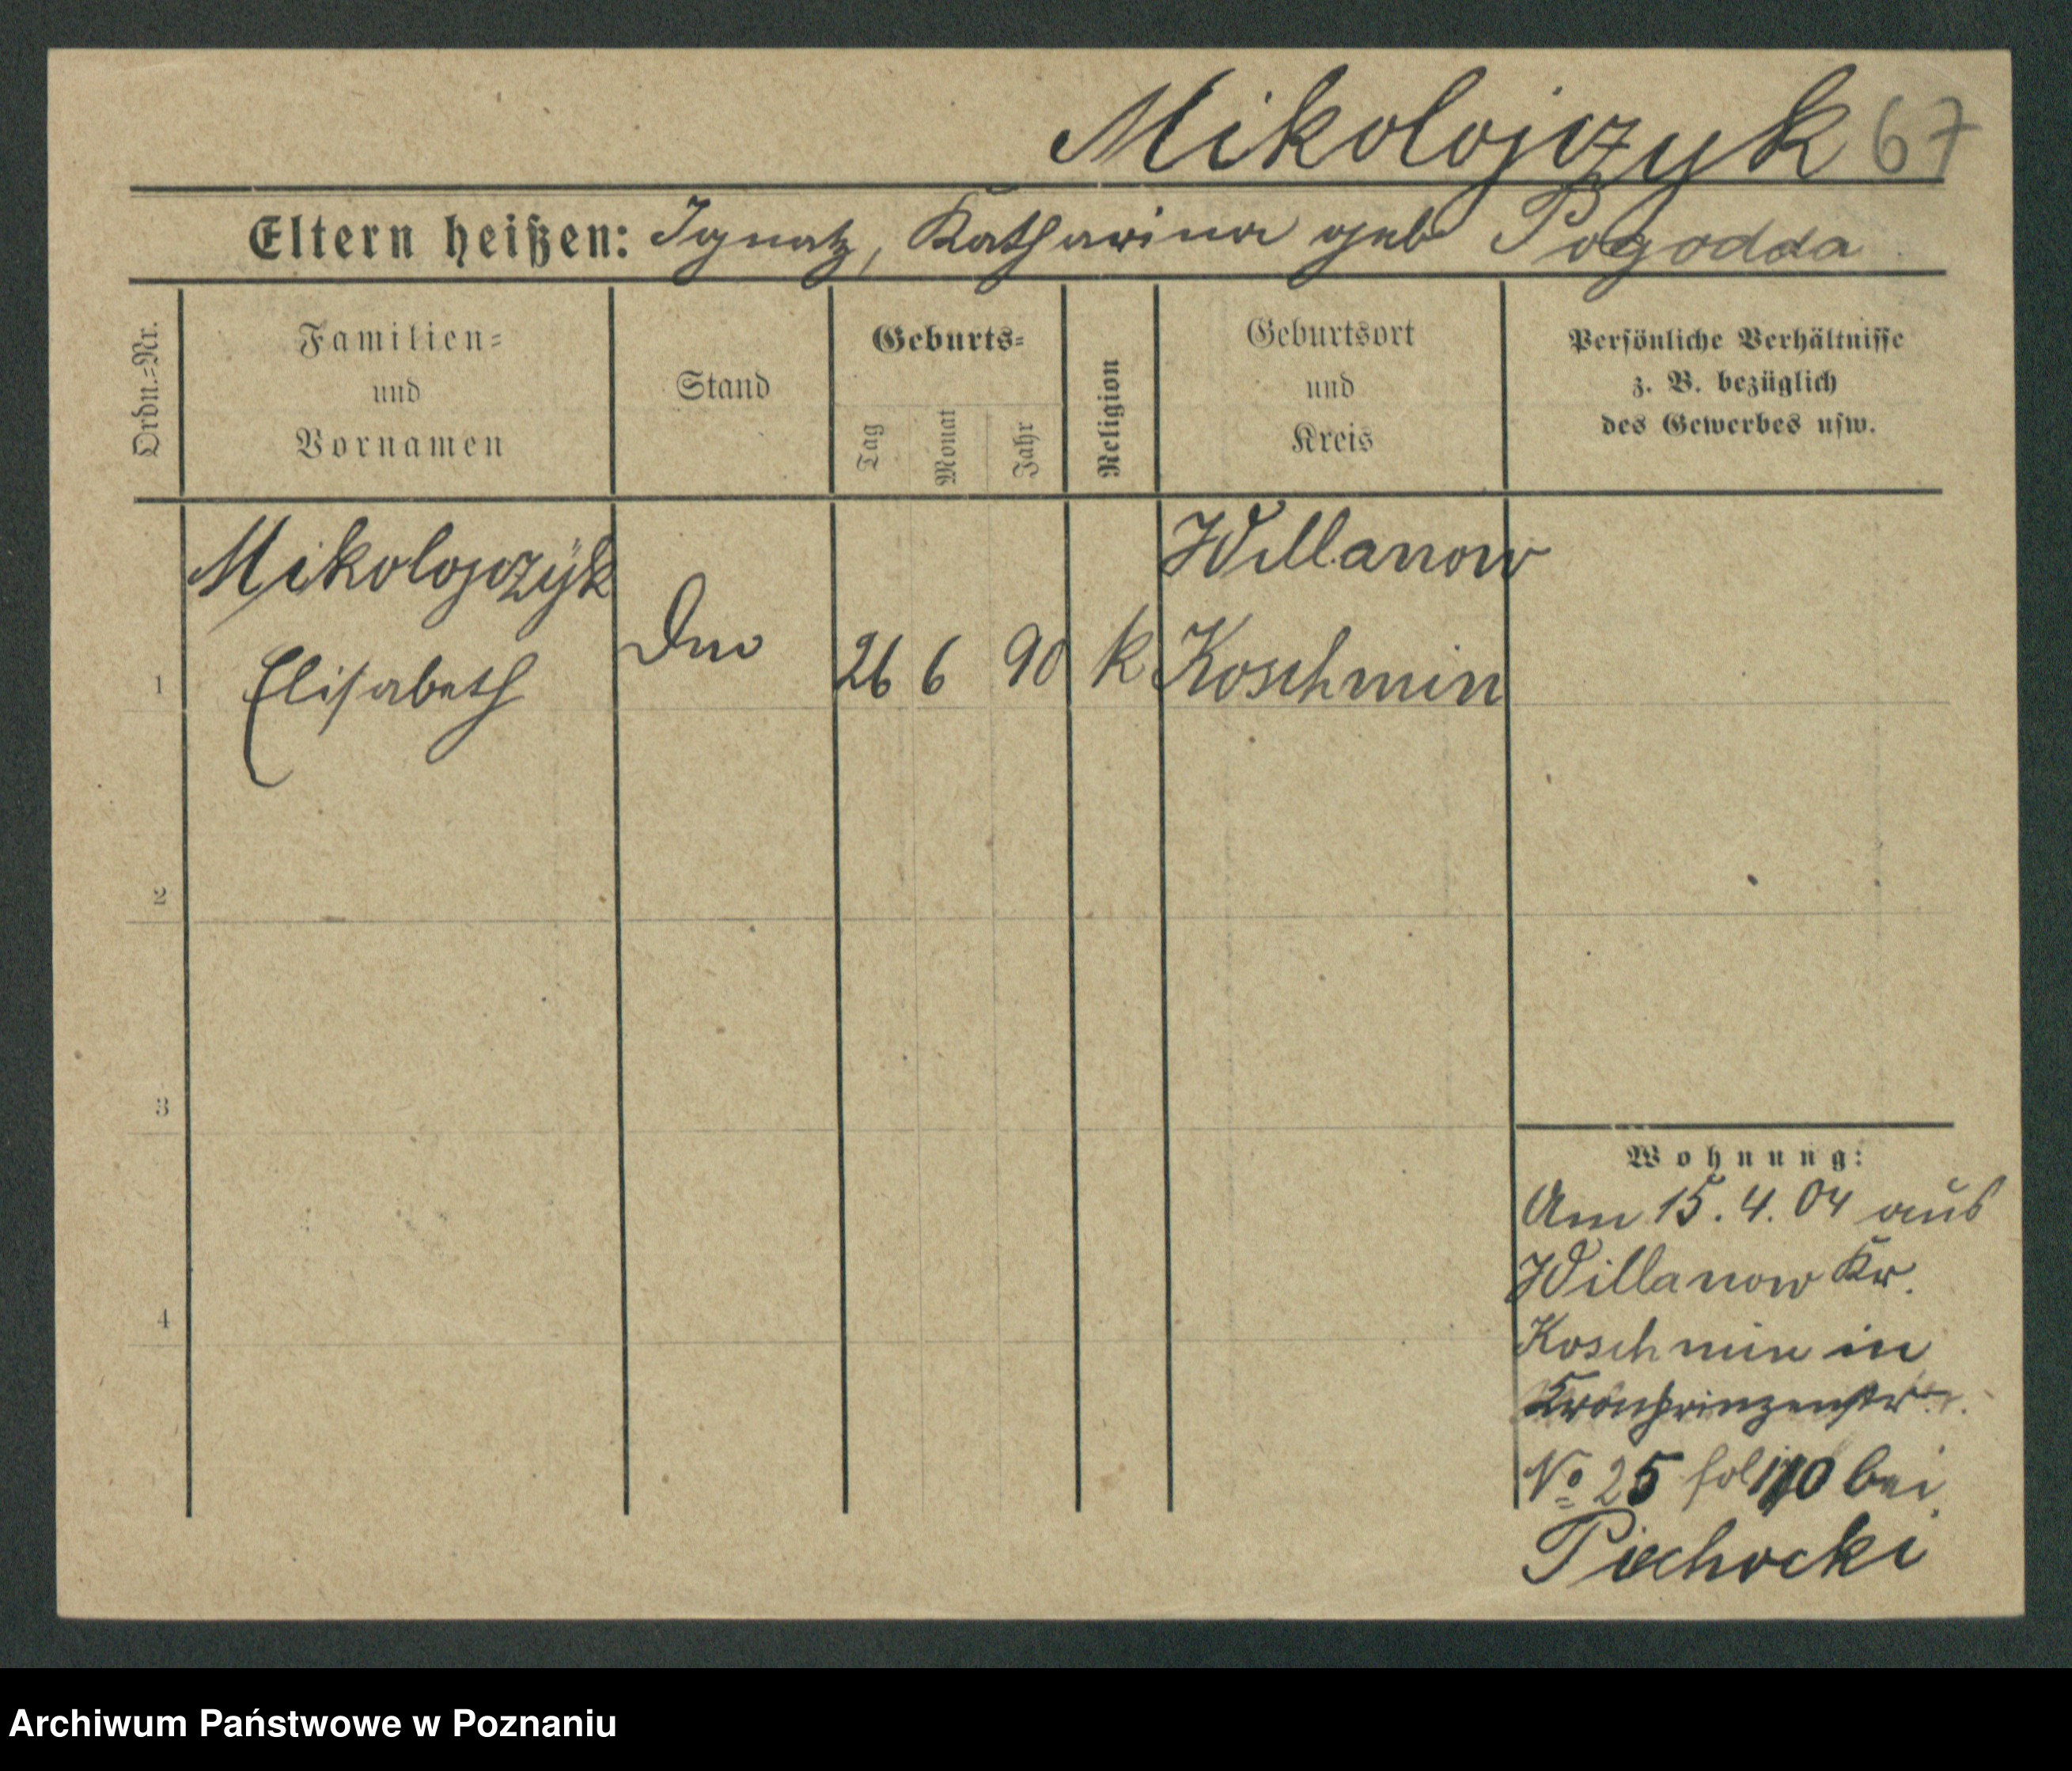 Mikolojczyk 67
Eltern heißen: Ignatz, Katharina geb Pogodda
Ordn.=Nr.
Familien=
und
Vornamen
Stand
Geburts=
Tag
Monat
Jahr
Religion
Geburtsort
und
Kreis
Persönliche Verhältnisse
z. B. bezüglich
des Gewerbes usw.
Mikolojczyk Willanow
1 Elisabeth 26 6 90 k Koschmin
2
3
4
Wohnung:
Am 15.4.04 aus
Willanow Kr.
Koschmin in
Kronprinzenstr.
No 25 fol bei
Piechocki
Archiwum Państwowe w Poznaniu